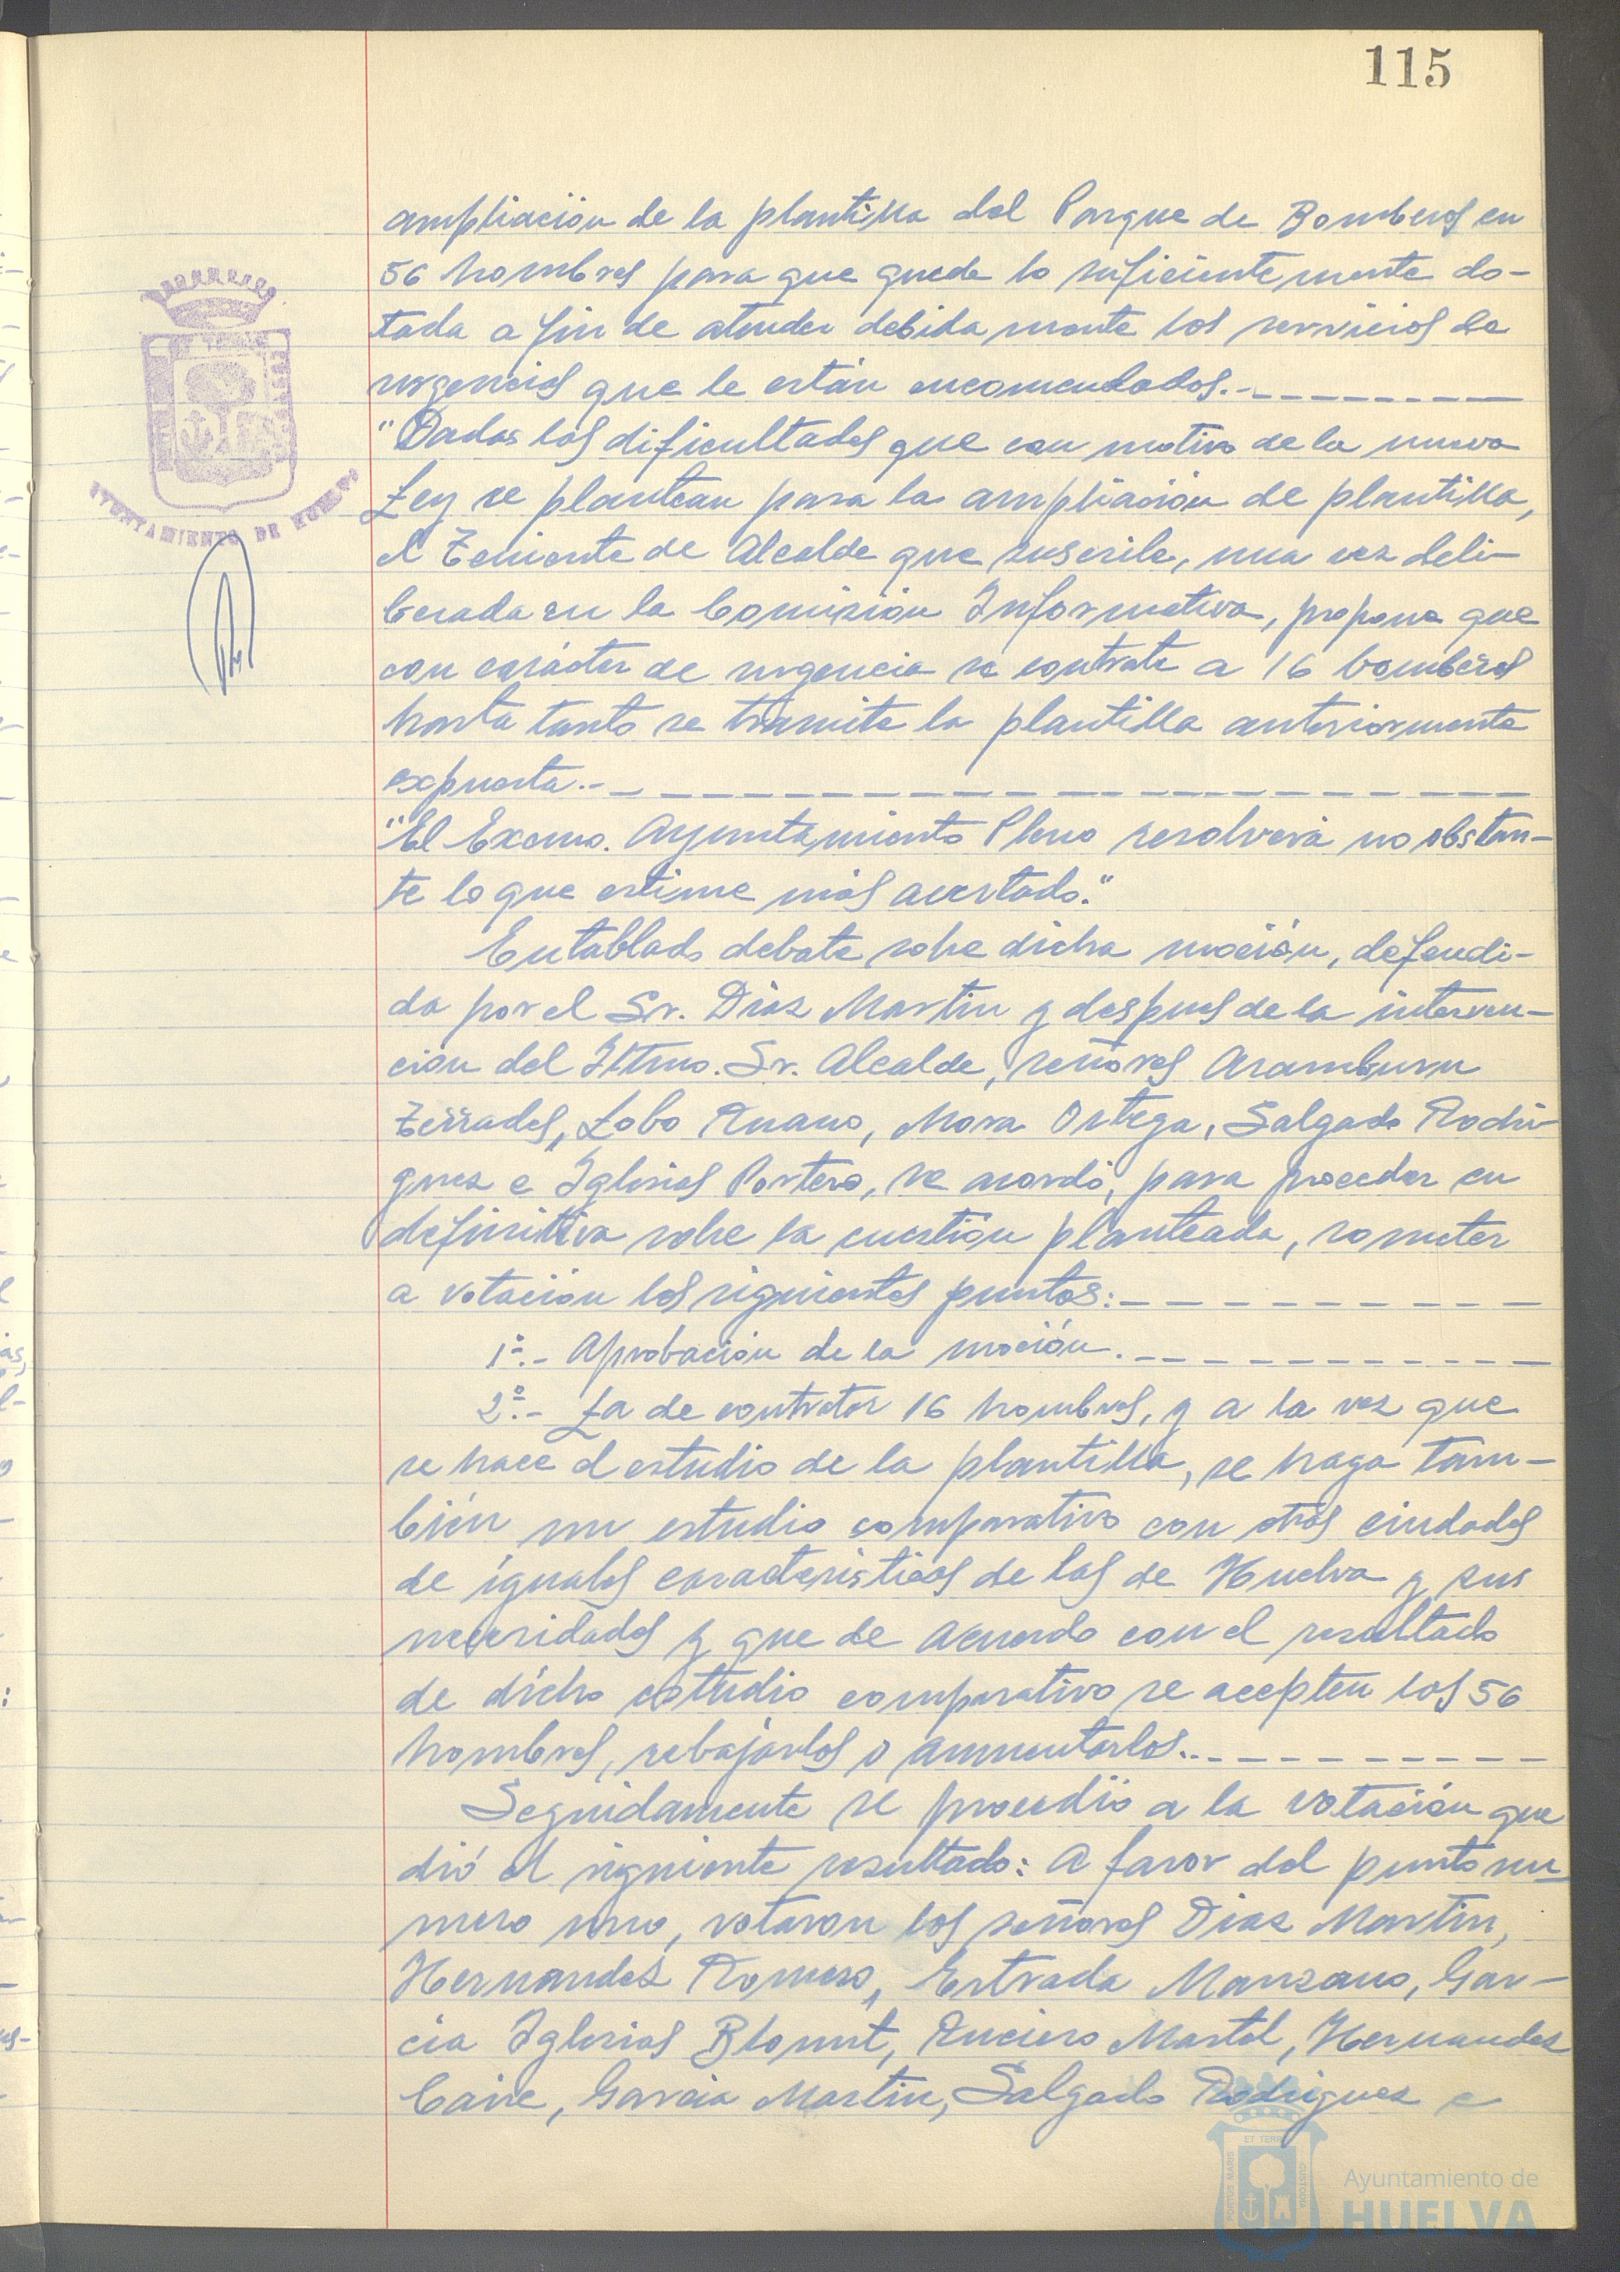 115
ampliación de la plantilla del Parque de Bomberos en
56 hombres para que quede lo suficientemente do-
tada a fin de atender debidamente los servicios de
urgencias que le están encomendados.-
"Dadas las dificultades que con motivo de la nueva
Ley se plantean para la ampliación de plantilla,
el Teniente de Alcalde que suscribe, una vez deli-
berada en la Comisión Informativa, propone que
con carácter de urgencia se contrate a 16 bomberos
hasta tanto se tramite la plantilla anteriormente
expuesta.-
"El Excmo. Ayuntamiento Pleno resolverá no obstan-
te lo que estime más acertado."
Entablado debate sobre dicha moción, defendi-
da por el Sr. Díaz Martin y despues de la interven-
ción del Iltmo. Sr. Alcalde, señores Aramburu
Terrades, Lobo Ruano, Mora Ortega, Salgado Rodri-
guez e Iglesias Portero, se acordó, para proceder en
definitiva sobre la cuestión planteada, someter
a votación los siguientes puntos:-
1º.- Aprobación de la moción.-
2º.- La de contratar 16 hombres, y a la vez que
se hace el estudio de la plantilla, se haga tam-
bién un estudio comparativo con otras ciudades
de iguales caracteristicas de las de Huelva y sus
necesidades y que de acuerdo con el resultado
de dicho estudio comparativo se acepten los 56
hombres, rebajarlos o aumentarlos.-
Seguidamente se procedió a la votación que
dió el siguiente resultado: A favor del punto nu-
mero uno, votaron los señores Diaz Martin,
Hernandez Romero, Estrada Manzano, Gar-
cia Iglesias Blount, Ruciero Martel, Hernandez
Caire, Garcia Martin, Salgado Rodriguez e
AYUNTAMIENTO DE HUELVA
PORTUS MARIS ET TERRAE CUSTODIA
Ayuntamiento de
HUELVA